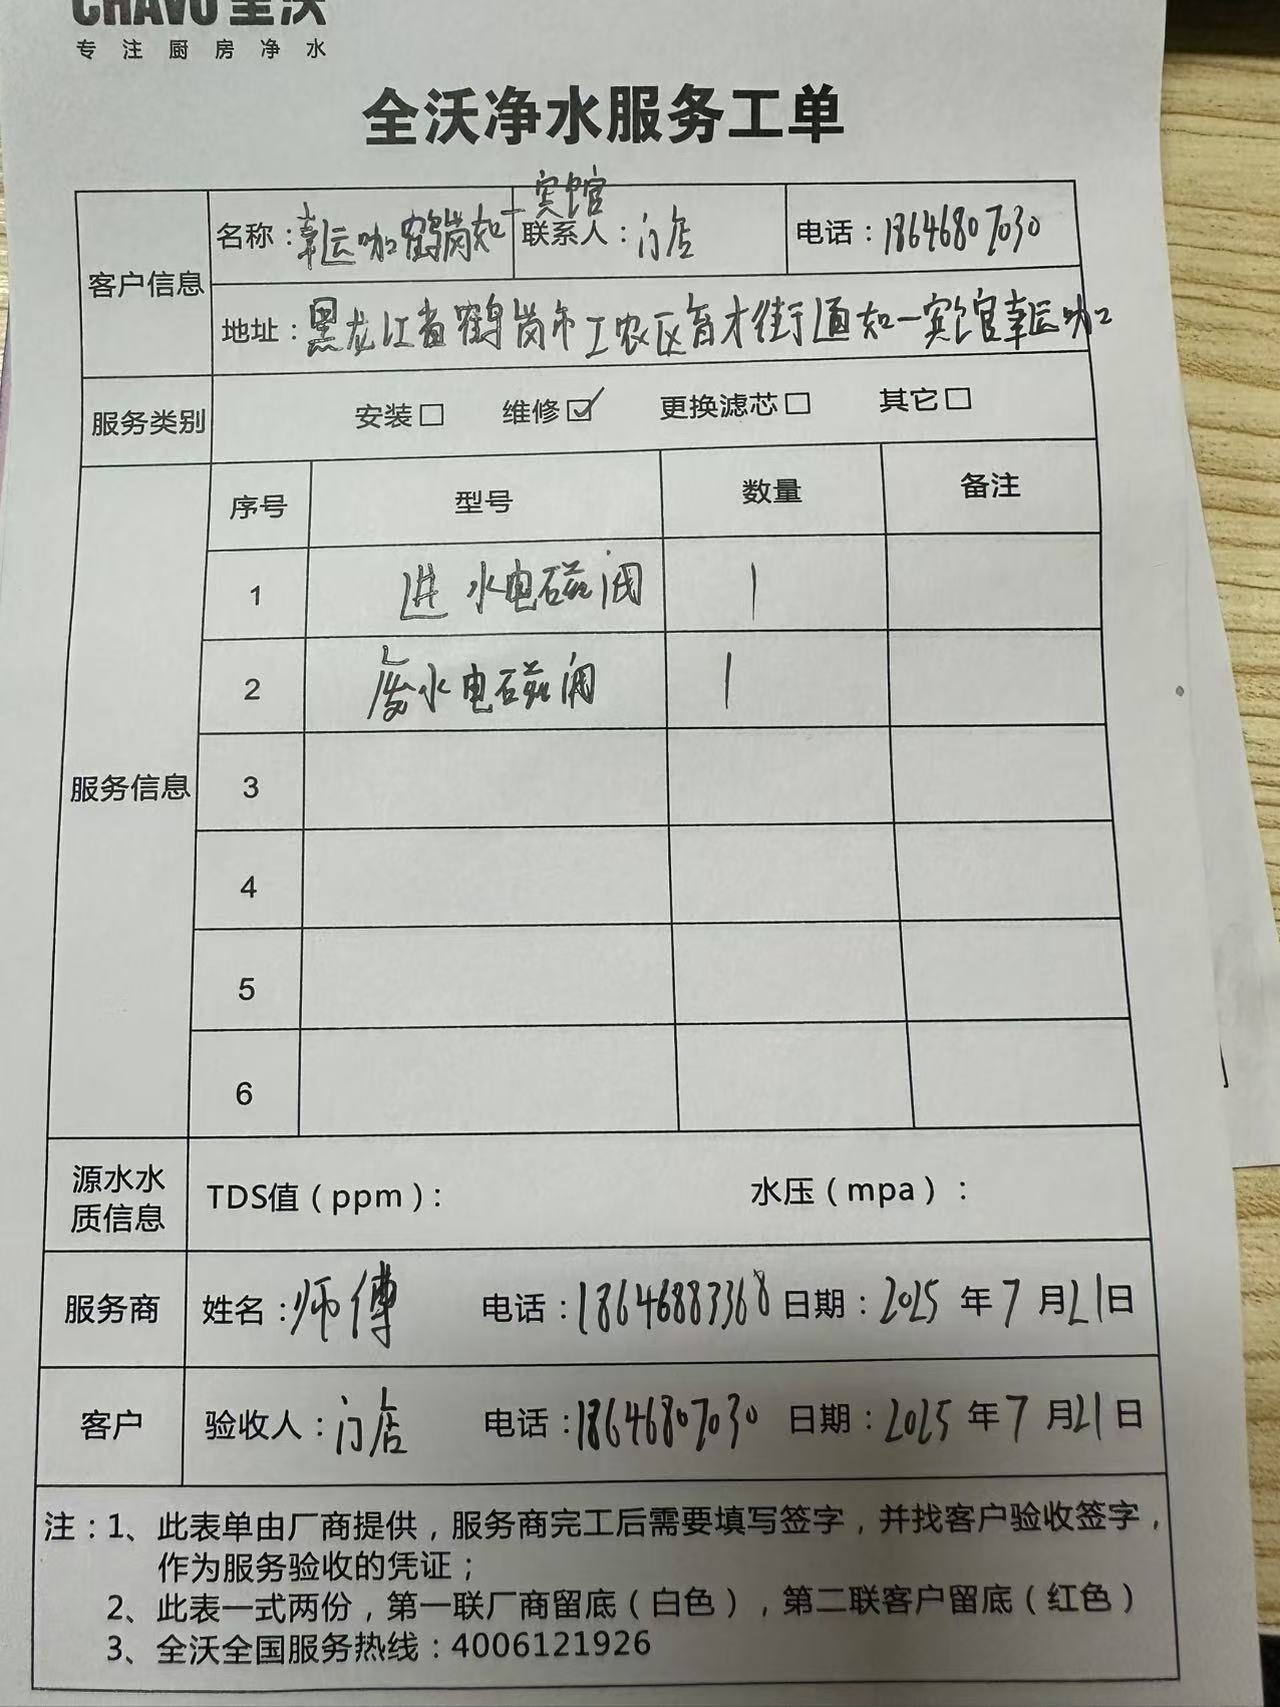 CHAVO 全沃
专注厨房净水
全沃净水服务工单
客户信息
名称：幸运咖鹤岗如一宾馆 联系人：门店 电话：18646807030
地址：黑龙江省鹤岗市工农区育才街道如一宾馆幸运咖
服务类别 安装□ 维修☑ 更换滤芯□ 其它□
服务信息
序号 型号 数量 备注
1 进水电磁阀 1
2 废水电磁阀 1
3
4
5
6
源水水质信息 TDS值（ppm）： 水压（mpa）：
服务商 姓名：师傅 电话：18646883368 日期：2025年7月21日
客户 验收人：门店 电话：18646807030 日期：2025年7月21日
注：1、此表单由厂商提供，服务商完工后需要填写签字，并找客户验收签字，
作为服务验收的凭证；
2、此表一式两份，第一联厂商留底（白色），第二联客户留底（红色）
3、全沃全国服务热线：4006121926